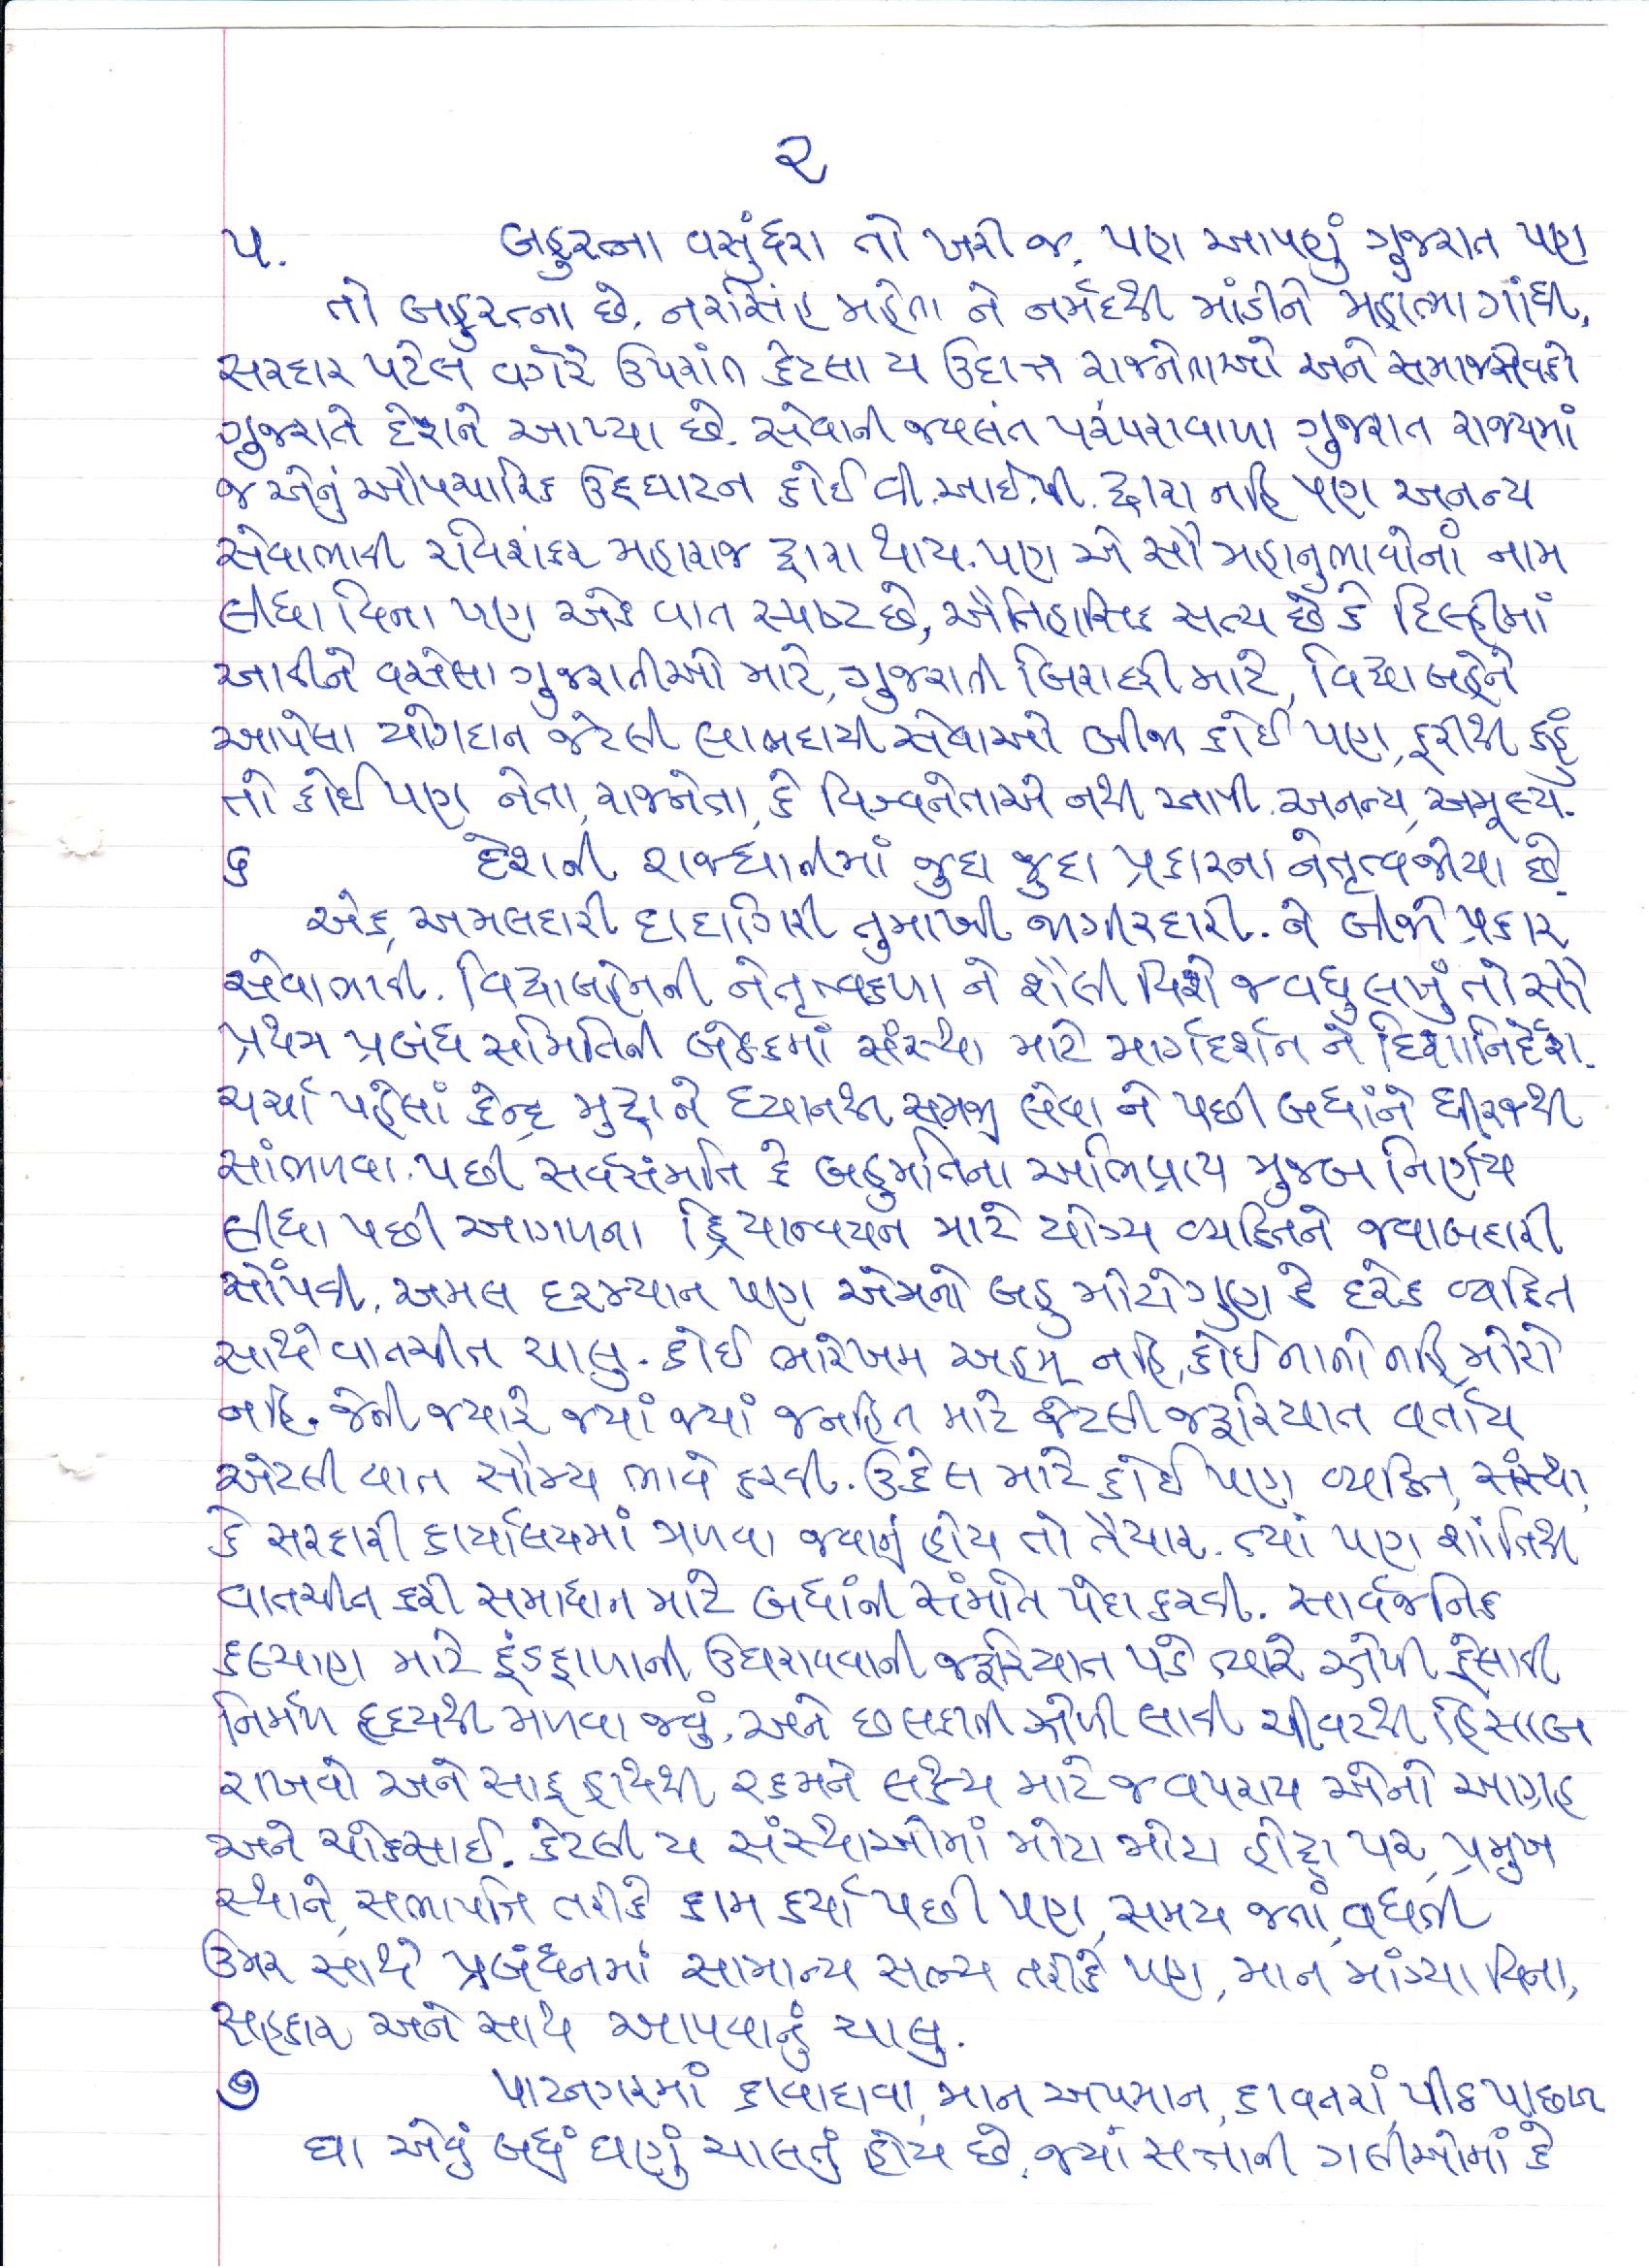 ૨
૫. બહુરત્ના વસુંધરા તો ખરી જ, પણ આપણું ગુજરાત પણ
તો બહુરત્ના છે. નરસિંહ મહેતા ને નર્મદથી માંડીને મહાત્મા ગાંધી,
સરદાર પટેલ વગેરે ઉપરાંત કેટલા ય ઉદાત્ત રાજનેતાઓ અને સમાજસેવકો
ગુજરાતે દેશને આપ્યા છે. સેવાની જ્વલંત પરંપરાવાળા ગુજરાત રાજ્યમાં
જ એનું ઔપચારિક ઉદ્ઘાટન કોઈ વી.આઈ.પી. દ્વારા નહિ પણ અનન્ય
સેવાભાવી રવિશંકર મહારાજ દ્વારા થાય. પણ એ સૌ મહાનુભાવોનાં નામ
લીધા વિના પણ એક વાત સ્પષ્ટ છે, ઐતિહાસિક સત્ય છે કે દિલ્હીમાં
આવીને વસેલા ગુજરાતીઓ માટે, ગુજરાતી બિરાદરી માટે, વિદ્યાબહેને
આપેલા યોગદાન જેટલી લાભદાયી સેવાઓ બીજા કોઈ પણ, ફરીથી કહું
તો કોઈ પણ નેતા, રાજનેતા, કે વિશ્વનેતાએ નથી આપી. અનન્ય, અમૂલ્ય.
૬ દેશની રાજધાનીમાં જુદા જુદા પ્રકારના નેતૃત્વ જોયા છે.
એક, અમલદારી દાદાગિરી તુમાખી જાગીરદારી. ને બીજો પ્રકાર
સેવાભાવી. વિદ્યાબહેનની નેતૃત્વકળા ને શૈલી વિશે જ વધુ લખું તો સૌ
પ્રથમ પ્રબંધ સમિતિની બેઠકમાં સંસ્થા માટે માર્ગદર્શન ને દિશાનિર્દેશ.
ચર્ચા પહેલાં કેન્દ્ર મુદ્દાને ધ્યાનથી સમજી લેવા ને પછી બધાંને ધીરજથી
સાંભળવા. પછી સર્વસંમતિ કે બહુમતિના અભિપ્રાય મુજબ નિર્ણય
લીધા પછી આગળના ક્રિયાન્વયન માટે યોગ્ય વ્યક્તિને જવાબદારી
સોંપવી. અમલ દરમ્યાન પણ એમનો બહુ મોટો ગુણ કે દરેક વ્યક્તિ
સાથે વાતચીત ચાલુ. કોઈ ભારેખમ અહમ્ નહિ, કોઈ નાનો નહિ, મોટો
નહિ. જેની જ્યારે જ્યાં જ્યાં જનહિત માટે જેટલી જરૂરિયાત વર્તાય
એટલી વાત સૌમ્ય ભાવે કરવી. ઉકેલ માટે કોઈ પણ વ્યક્તિ, સંસ્થા,
કે સરકારી કાર્યાલયમાં મળવા જવાનું હોય તો તૈયાર. ત્યાં પણ શાંતિથી
વાતચીત કરી સમાધાન માટે બધાંની સંમતિ પેદા કરવી. સાર્વજનિક
કલ્યાણ માટે ફંડફાળાની ઉઘરાવવાની જરૂરિયાત પડે ત્યારે ઝોળી ફેલાવી
નિર્મળ હૃદયથી મળવા જવું, અને છલકાતી ઝોળી લાવી ચીવટથી હિસાબ
રાખવો અને સાફ હાથેથી રકમને લક્ષ્ય માટે જ વપરાય એનો આગ્રહ
અને ચોકસાઈ. કેટલી ય સંસ્થાઓમાં મોટા મોટા હોદ્દા પર, પ્રમુખ
સ્થાને, સભાપતિ તરીકે કામ કર્યા પછી પણ, સમય જતાં, વધતી
ઉંમર સાથે પ્રબંધનમાં સામાન્ય સભ્ય તરીકે પણ, માન માંગ્યા વિના,
સહકાર અને સાથ આપવાનું ચાલુ.
૭ પાટનગરમાં કાવાદાવા, માન અપમાન, કાવતરાં, પીઠ પાછળ
ઘા એવું બધું ઘણું ચાલતું હોય છે. જ્યાં સત્તાની ગલીઓમાં કે